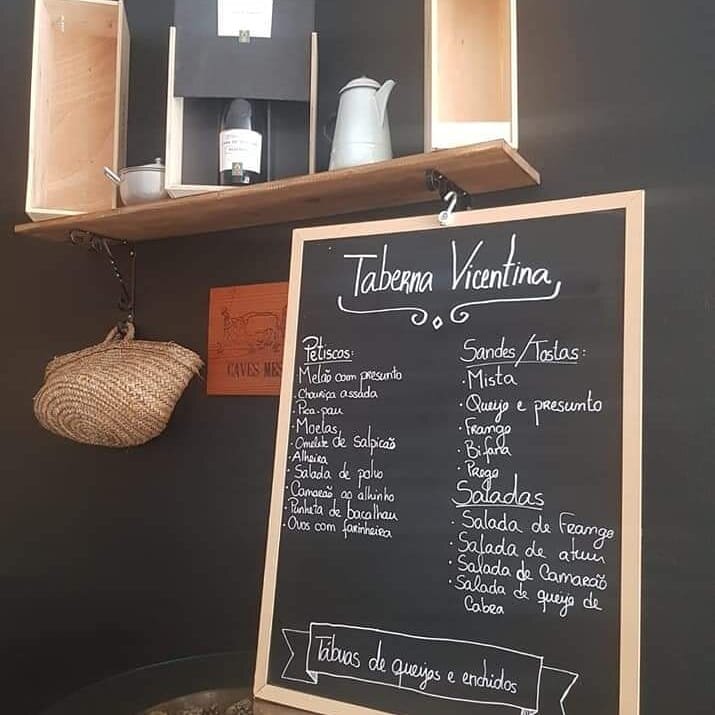 CAVES MES
Taberna Vicentina
Petiscos:
· Melão com presunto
· Chouriça assada
· Pica-pau
· Moelas
· Omelete de salpicão
· Alheira
· Salada de polvo
· Camarão ao alhinho
· Punheta de bacalhau
· Ovos com farinheira
Sandes/Tostas:
· Mista
· Queijo e presunto
· Frango
· Bifana
· Prego
Saladas
· Salada de Frango
· Salada de atum
· Salada de Camarão
· Salada de queijo de
Cabra
Tábuas de queijos e enchidos